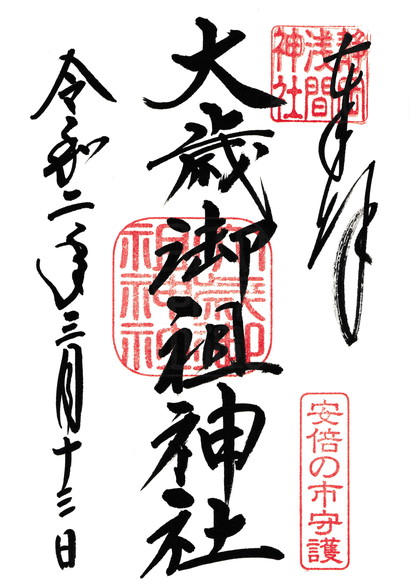 奉拝
静岡
浅間
神社
大歳御祖神社
大歳御
祖神社
安倍の市守護
令和二年三月十三日